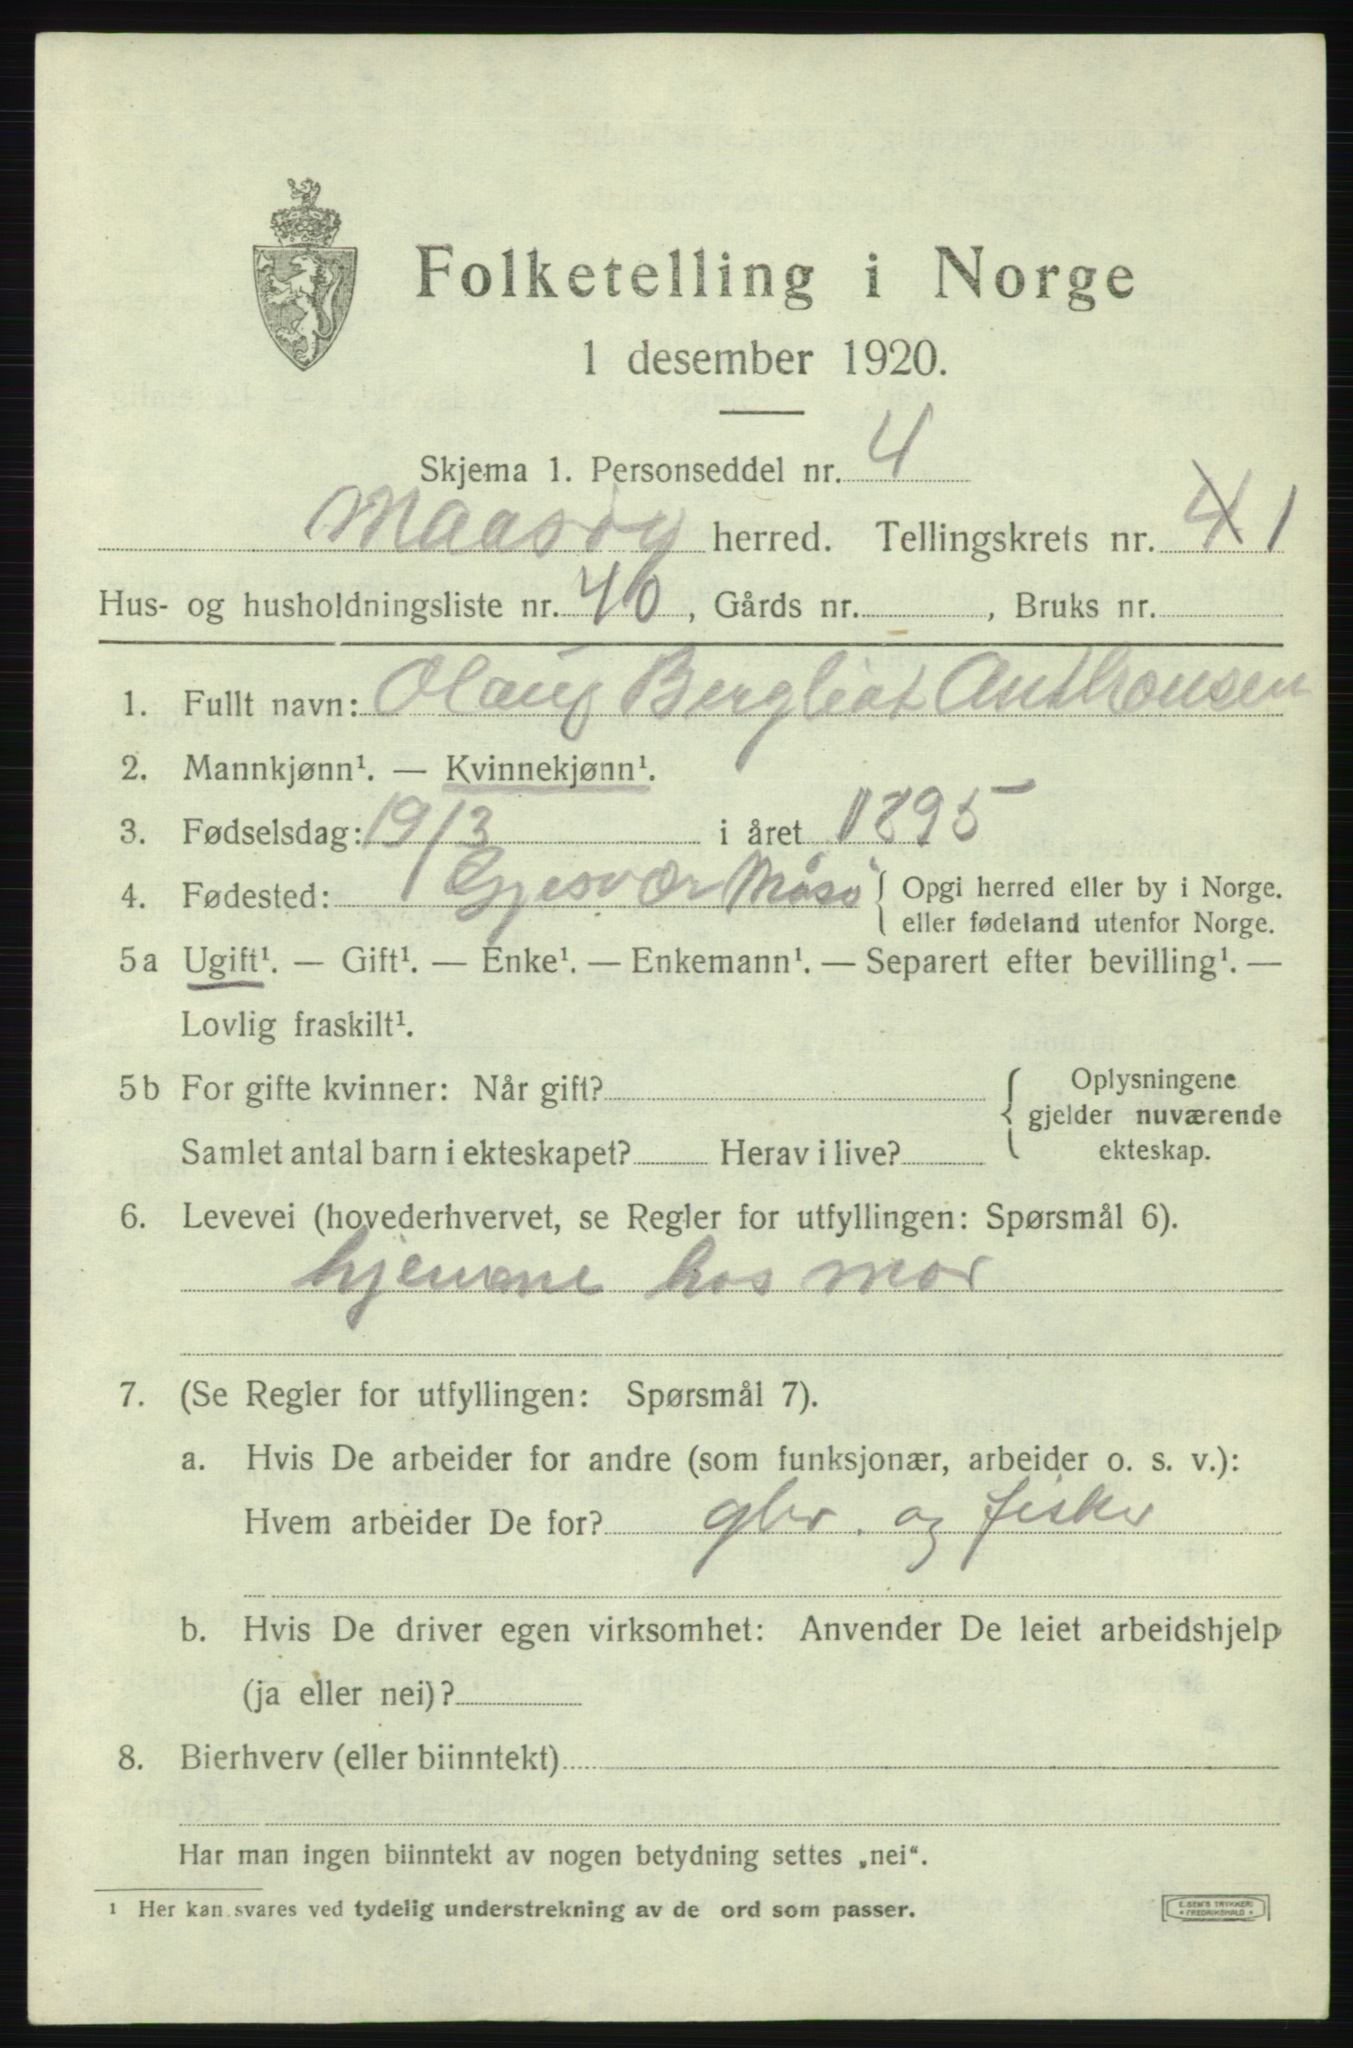 Folketelling i Norge
1 desember 1920.
Skjema 1. Personseddel nr. 4
Maasøy herred. Tellingskrets nr. 4 1
Hus- og husholdningsliste nr. 40, Gårds nr. , Bruks nr.
1. Fullt navn: Olaug Bergliot Anthonsen
2. Mannkjønn¹. — Kvinnekjønn¹.
3. Fødselsdag: 19/3 i året 1895
4. Fødested: Gjesvær Måsø { Opgi herred eller by i Norge.
eller fødeland utenfor Norge.
5a Ugift¹. — Gift¹. — Enke¹. — Enkemann¹. — Separert efter bevilling¹. —
Lovlig fraskilt¹.
5b For gifte kvinner: Når gift? { Oplysningene
gjelder nuværende
Samlet antal barn i ekteskapet? Herav i live? ekteskap.
6. Levevei (hovederhvervet, se Regler for utfyllingen: Spørsmål 6).
hjemme hos mor
7. (Se Regler for utfyllingen: Spørsmål 7).
a. Hvis De arbeider for andre (som funksjonær, arbeider o. s. v.):
Hvem arbeider De for? gbr. og fisker
b. Hvis De driver egen virksomhet: Anvender De leiet arbeidshjelp
(ja eller nei)?
8. Bierhverv (eller biinntekt)
Har man ingen biinntekt av nogen betydning settes „nei“.
¹ Her kan svares ved tydelig understrekning av de ord som passer.
E. SEM'S TRYKKERI
• FREDRIKSHALD •